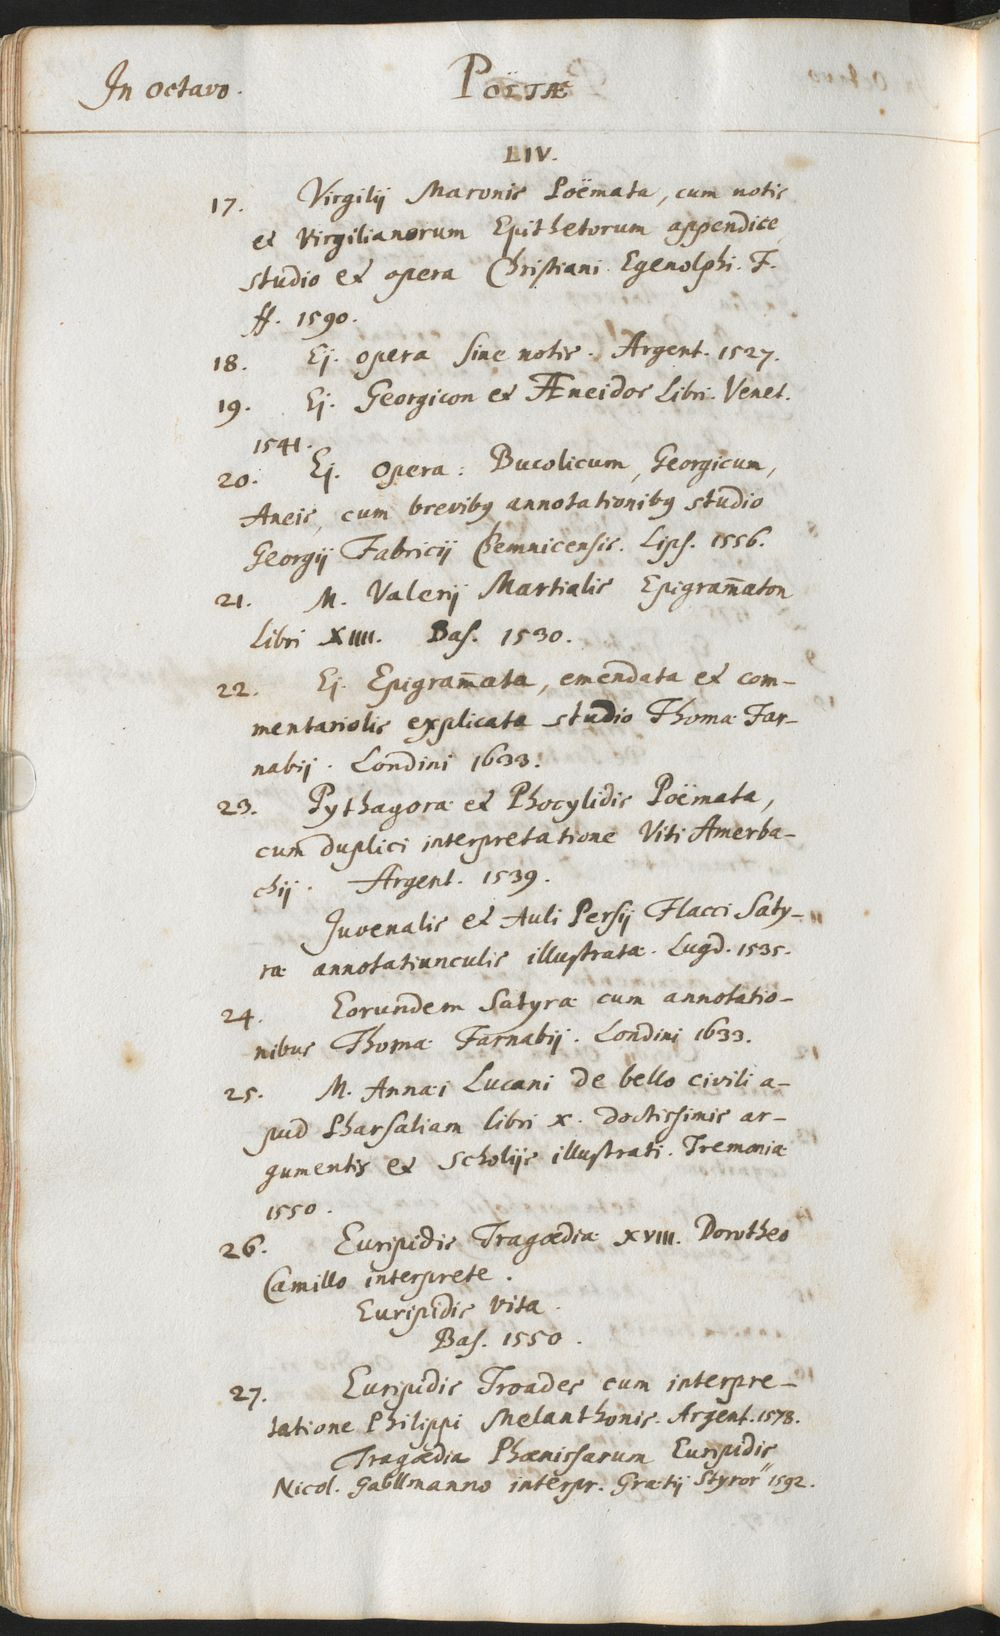 In octavo.
POËTÆ
LIV.
17. Virgilij Maronis Poëmata, cum notis
et Virgilianorum Epithetorum appendice,
studio et opera Christiani Egenolphi. F.
ff. 1590.
18. Ej. opera sine notis. Argent. 1527.
19. Ej. Georgicon et Æneidos Libri. Venet.
1541.
20. Ej. Opera: Bucolicum, Georgicum,
Aneis, cum brevibꝰ annotationibꝰ studio
Georgij Fabricij Chemnicensis. Lips. 1556.
21. M. Valerij Martialis Epigram̄aton
Libri XIIII. Bas. 1530.
22. Ej. Epigram̄ata, emendata et com-
mentariolis explicata studio Thomæ Far-
nabij. Londini 1633.
23. Pythagoræ et Phocylidis Poëmata,
cum duplici interpretatione Viti Amerba-
chij. Argent. 1539.
Juvenalis et Auli Persij Flacci Saty-
ræ annotatiunculis illustratæ. Lugd. 1535.
24. Eorundem Satyræ cum annotatio-
nibus Thomæ Farnabij. Londini 1633.
25. M. Annæi Lucani de bello civili a-
pud Pharsaliam libri x. doctissimis ar-
gumentis et Scholijs illustrati. Tremoniæ
1550.
26. Euripidis Tragœdiæ XVIII. Dorotheo
Camillo interprete.
Euripidis Vita.
Bas. 1550.
27. Euripidis Troades cum interpre-
tatione Philippi Melanthonis. Argent. 1578.
Tragœdia Phœnissarum Euripidis
Nicol. Gablmanno interpr. Grætij Styror" 1592.